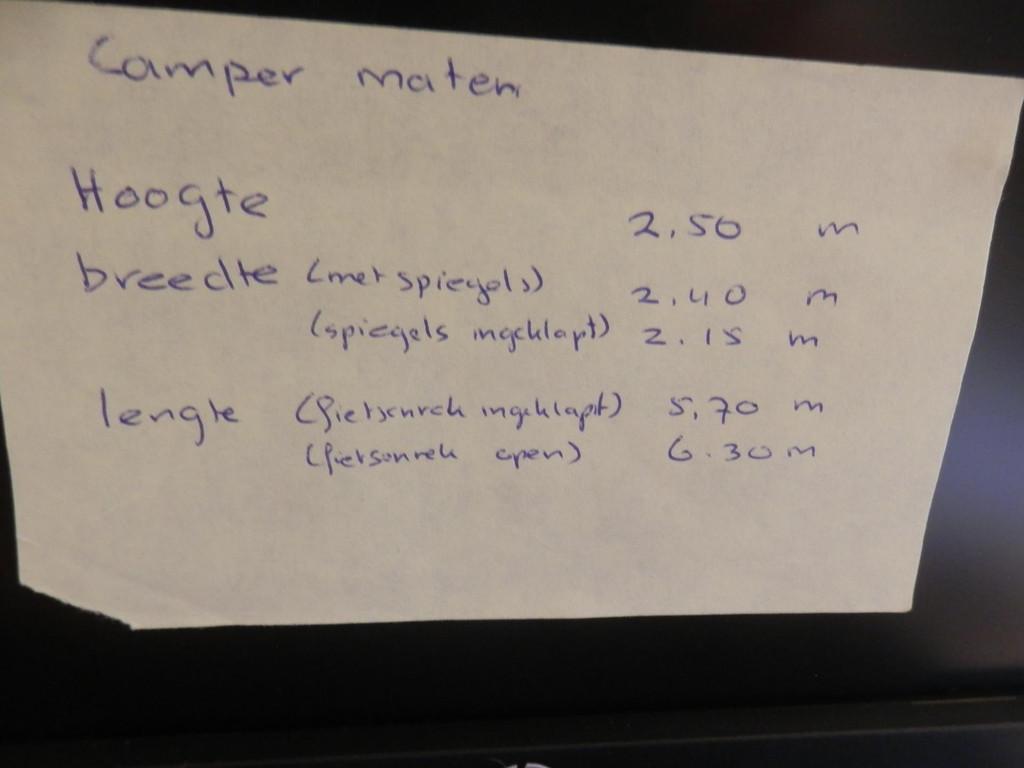 Camper maten
Hoogte 2.50 m
breedte (met spiegels) 2.40 m
(spiegels ingeklapt) 2.15 m
lengte (fietsenrek ingeklapt) 5,70 m
(fietsenrek open) 6.30 m